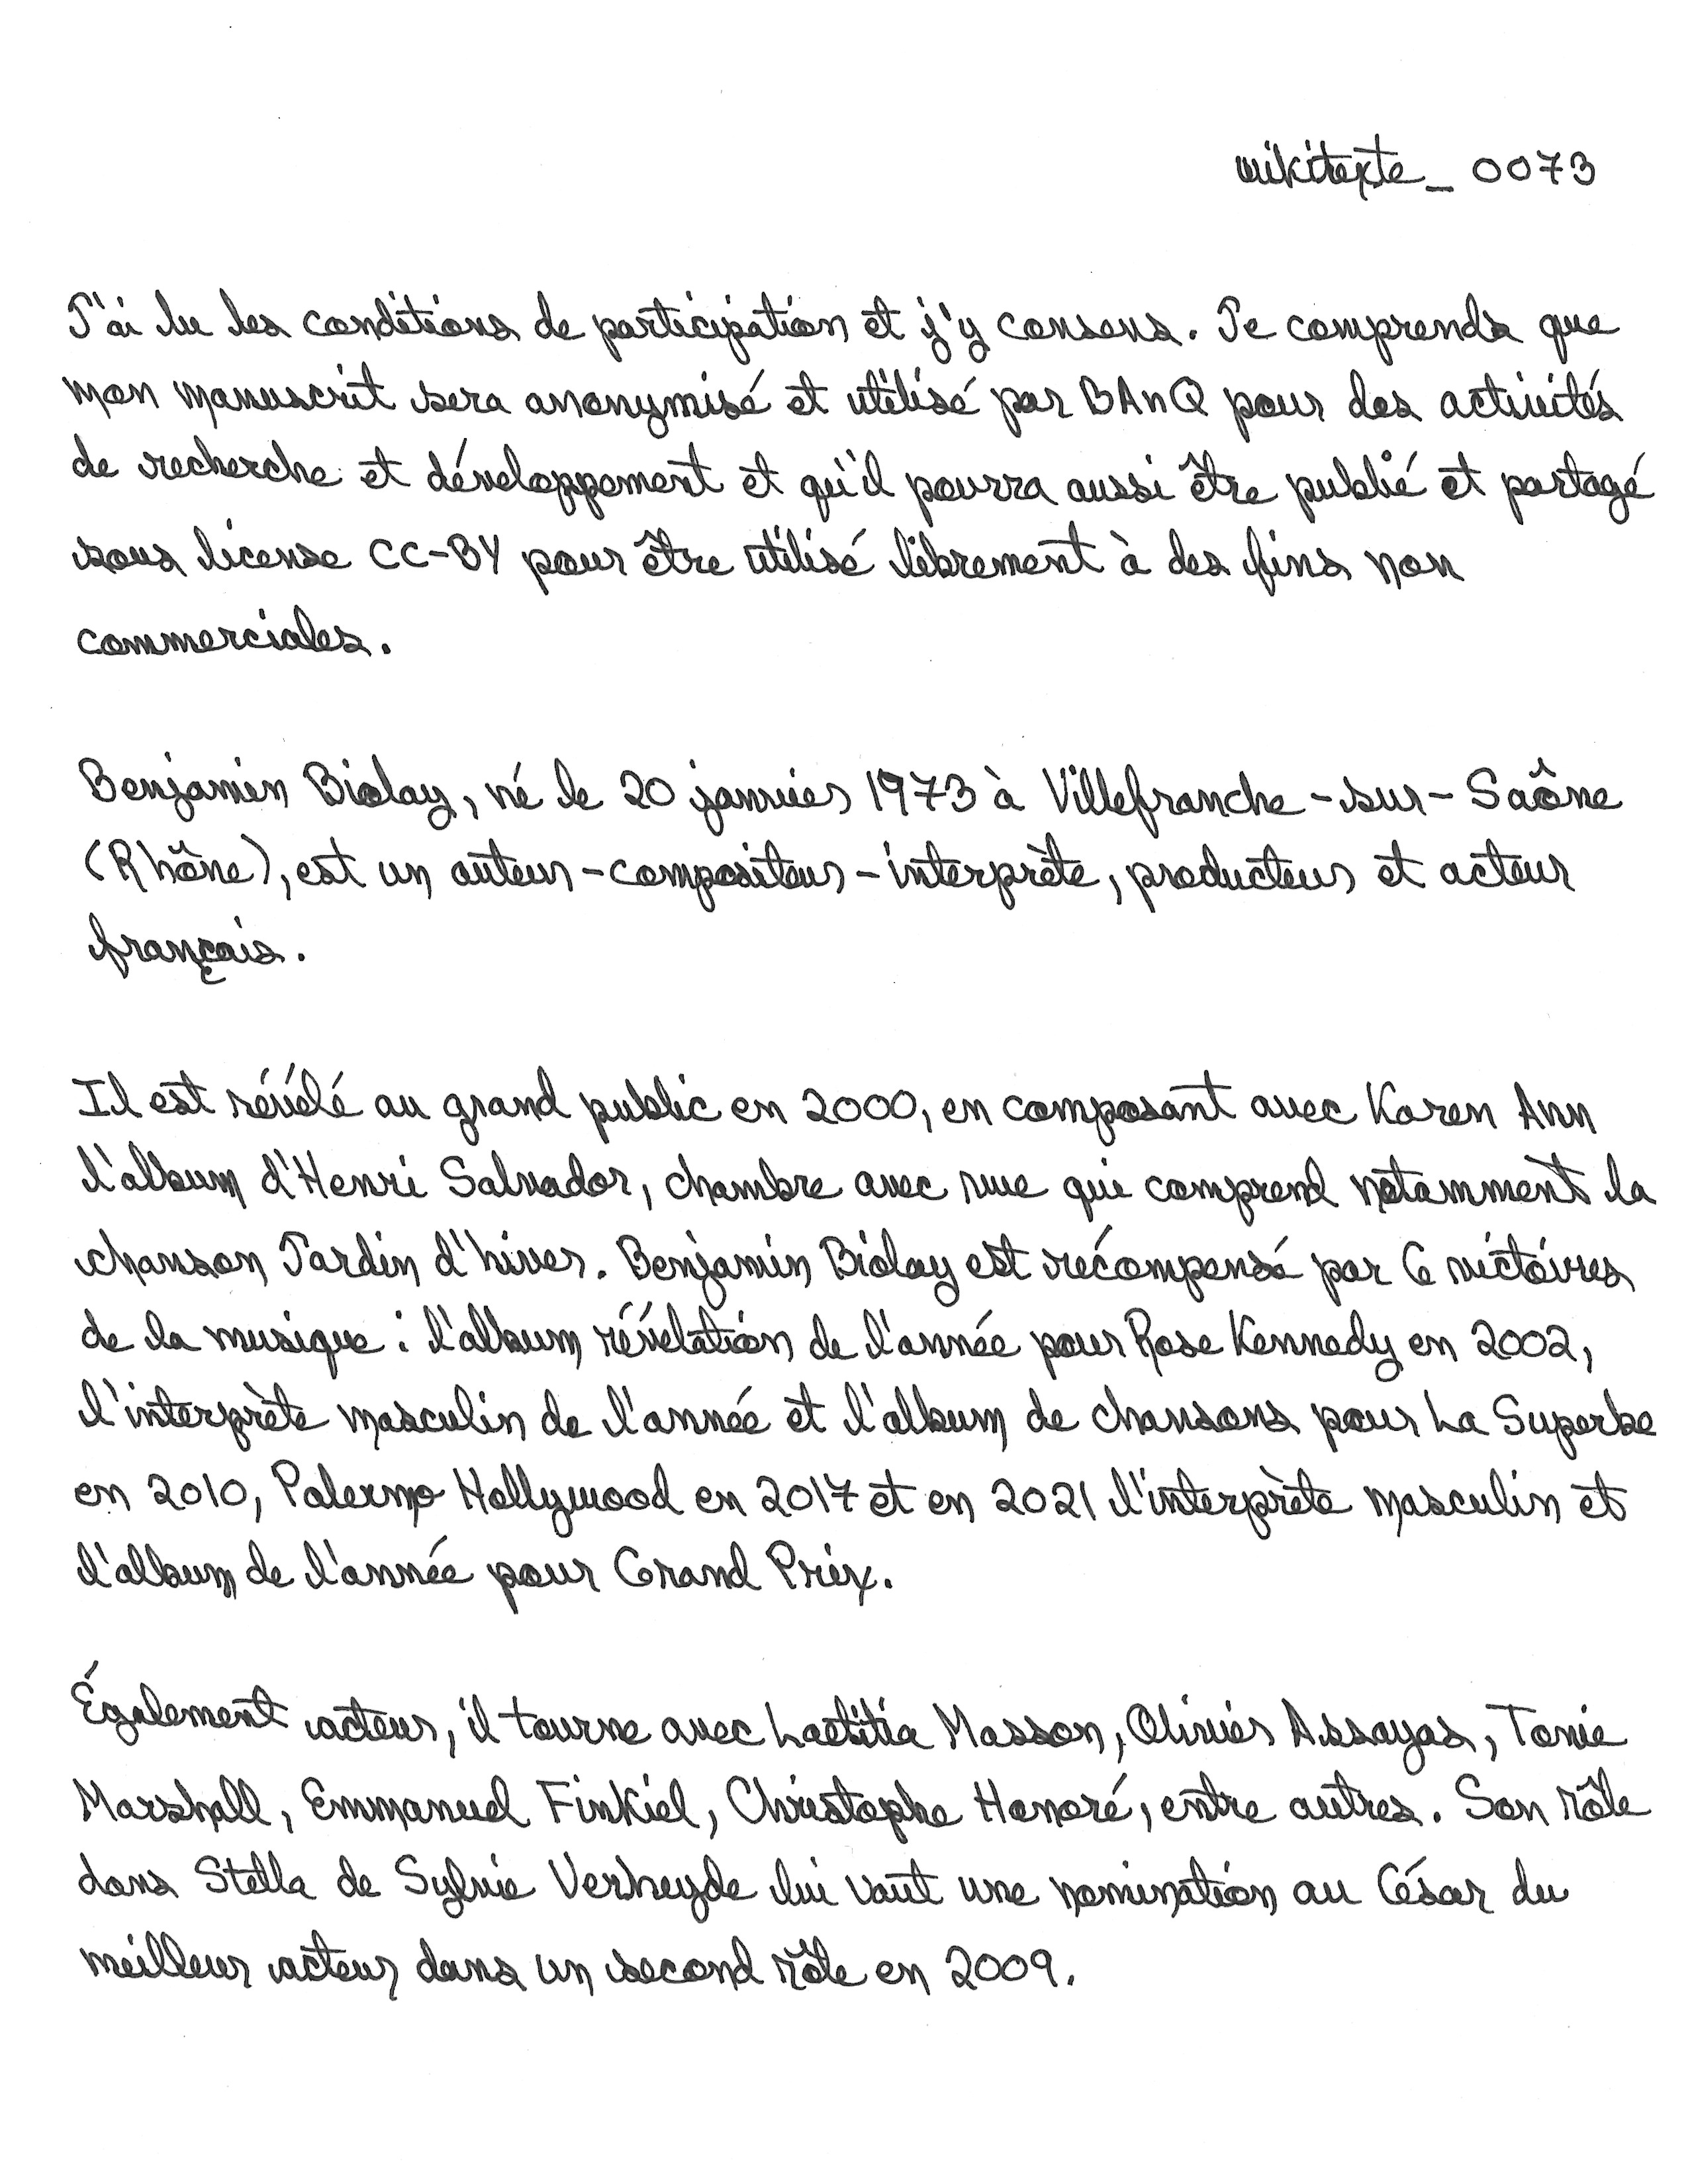 wikitexte_0073
J'ai lu les conditions de participation et j'y consens. Je comprends que
mon manuscrit sera anonymisé et utilisé par BAnQ pour des activités
de recherche et développement et qu'il pourra aussi être publié et partagé
sous license CC-BY pour être utilisé librement à des fins non
commerciales.
Benjamin Biolay, né le 20 janvier 1973 à Villefranche-sur-Saône
(Rhône), est un auteur-compositeur-interprète, producteur et acteur
français.
Il est révélé au grand public en 2000, en composant avec Karen Ann
l'album d'Henri Salvador, chambre avec vue qui comprend notamment la
chanson Jardin d'hiver. Benjamin Biolay est récompensé par 6 victoires
de la musique : l'album révélation de l'année pour Rose Kennedy en 2002,
l'interprète masculin de l'année et l'album de chansons pour La Superbe
en 2010, Palermo Hollywood en 2017 et en 2021 l'interprète masculin et
l'album de l'année pour Grand Prix.
Également acteur, il tourne avec Laetitia Masson, Olivier Assayas, Tonie
Marshall, Emmanuel Finkiel, Christophe Honoré, entre autres. Son rôle
dans Stella de Sylvie Verheyde lui vaut une nomination au César du
meilleur acteur dans un second rôle en 2009.